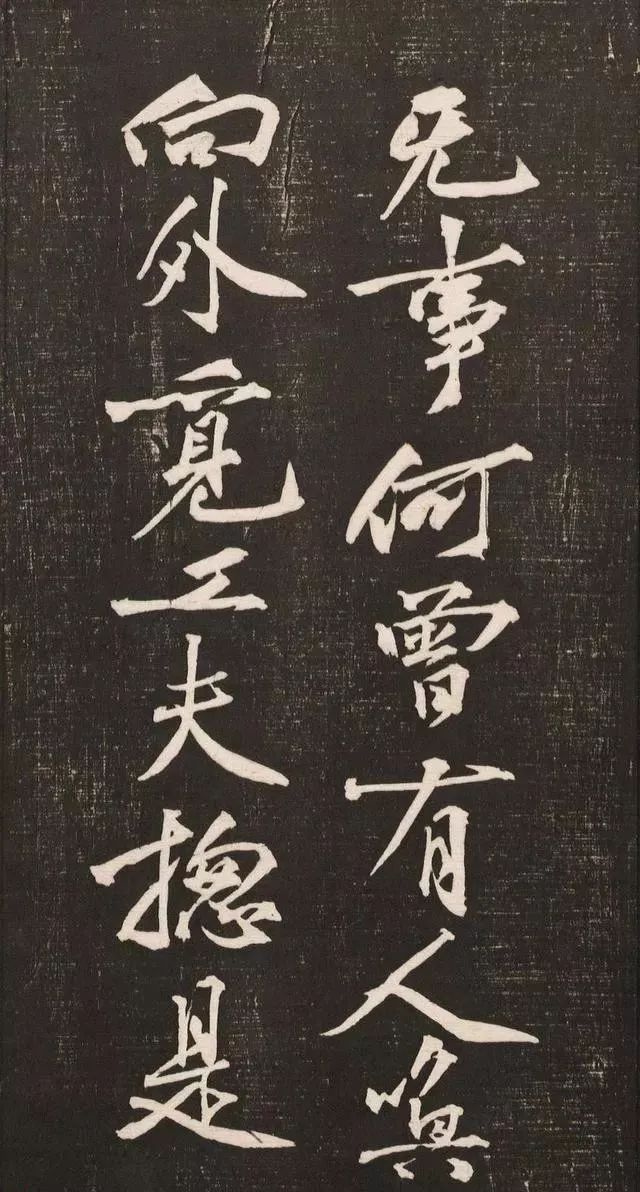 无事何曾有人喚
向外覓工夫摠是